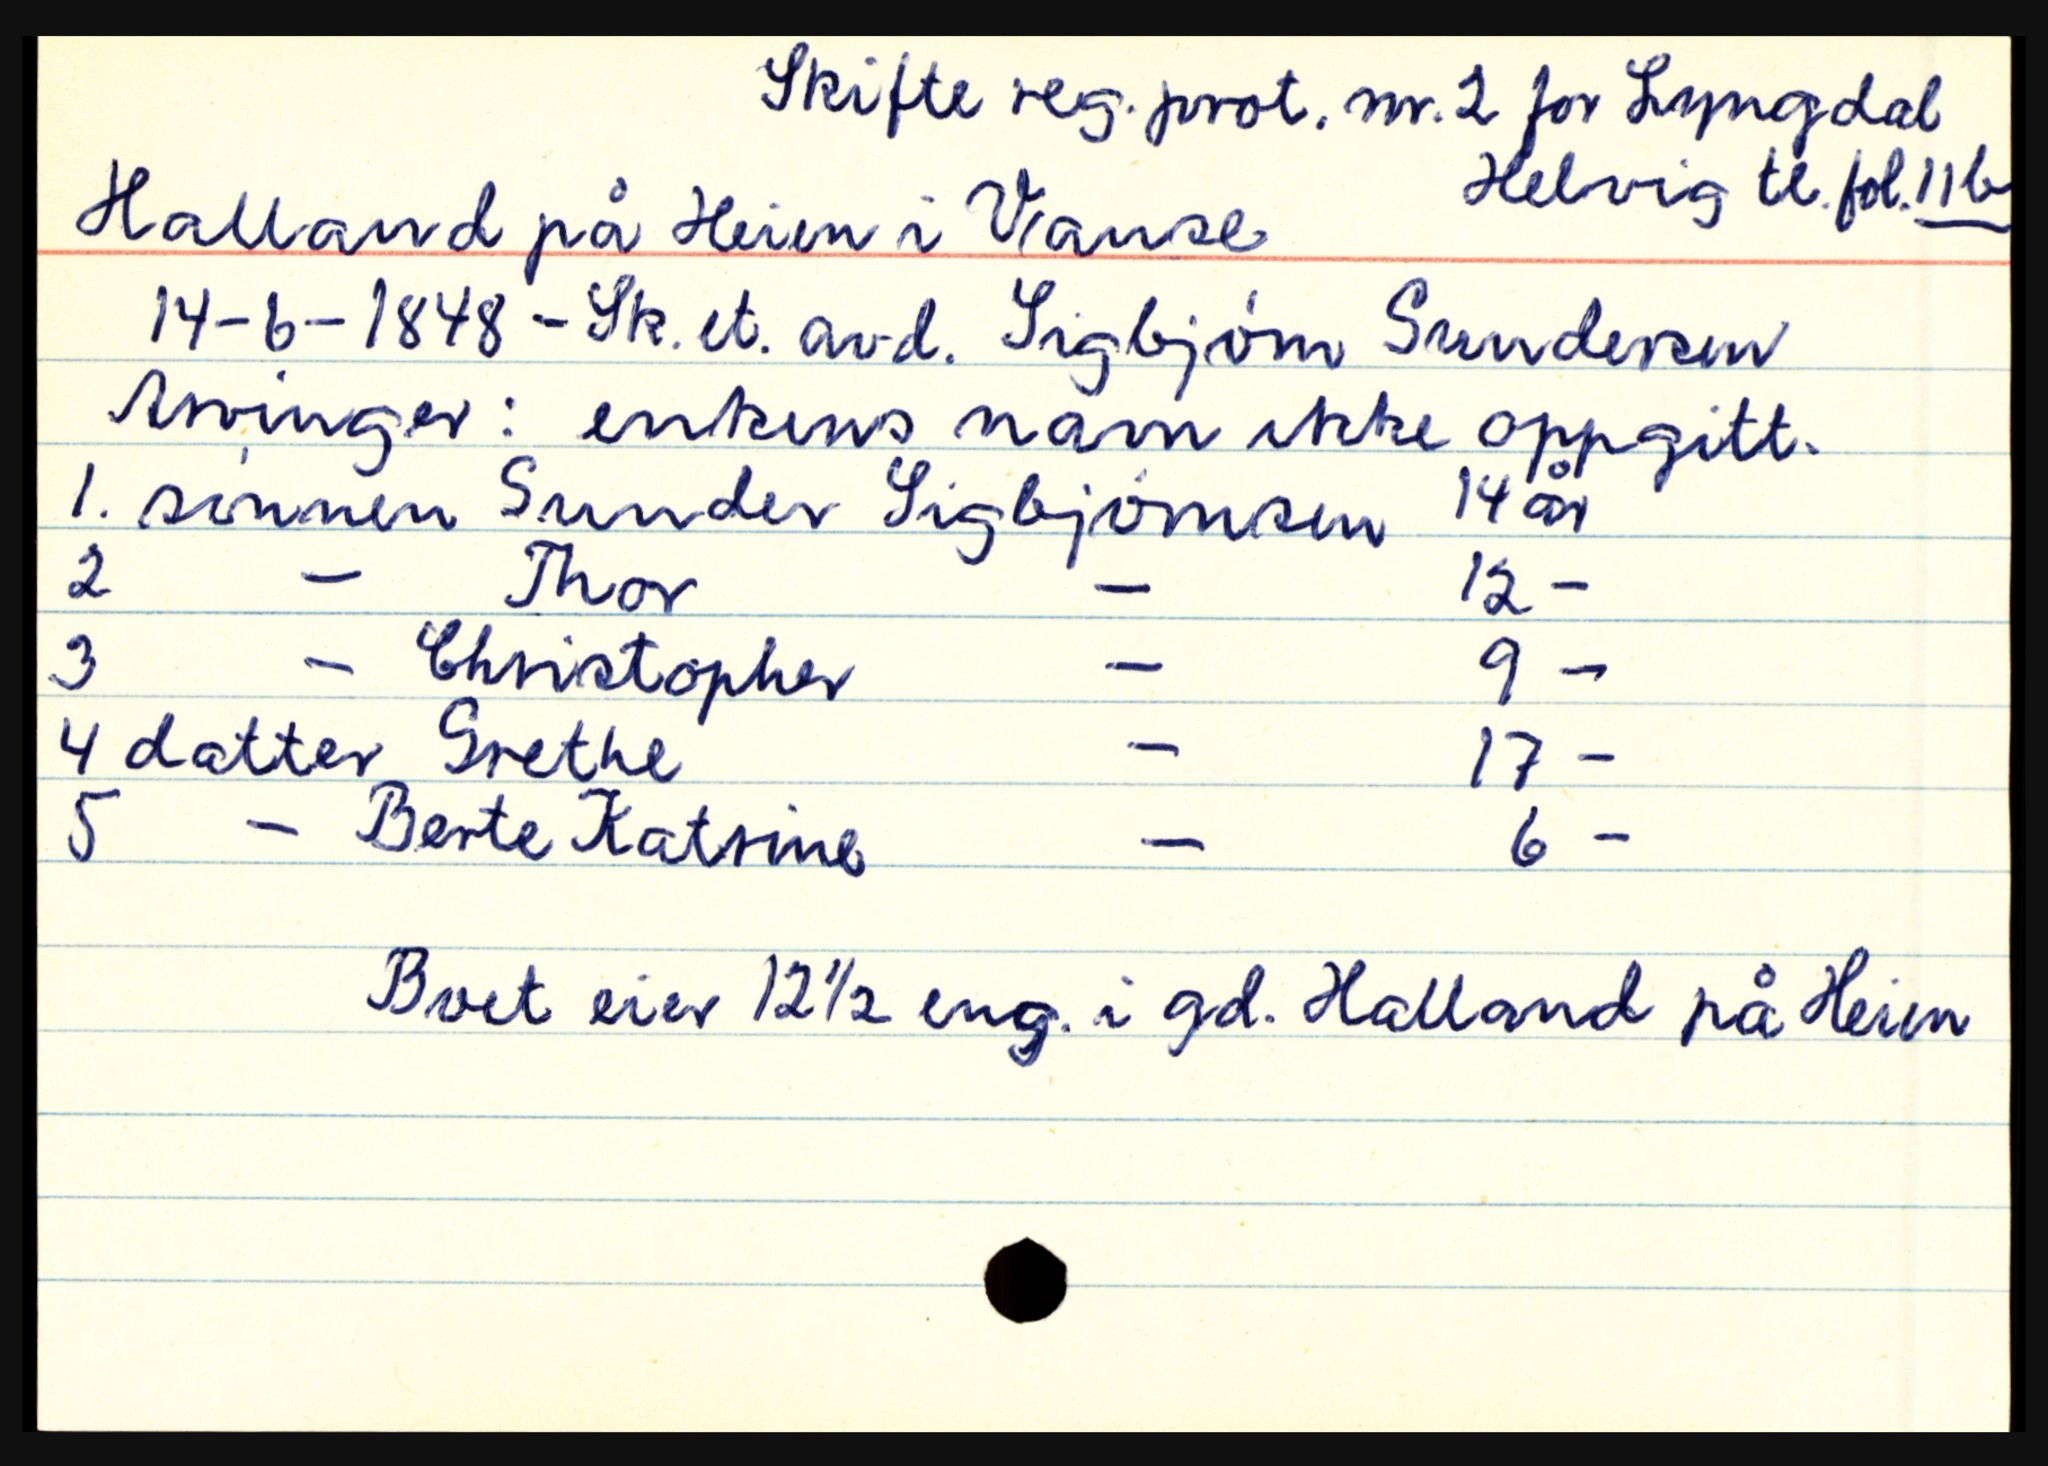 Skifte reg. prot. nr. 2 for Lyngdal
Helvig tl. fol. 11b
Halland på Heien i Vanse
14-6-1848 - Sk. et. avd. Sigbjørn Sundersen
Arvinger: enkens navn ikke oppgitt.
1. sønnen Sunder Sigbjørnsen 14 år
2 - Thor - 12 -
3 - Christopher - 9 -
4 datter Grethe - 17 -
5 - Berte Katrine - 6 -
Boet eier 12 1/2 eng. i gd. Halland på Heien